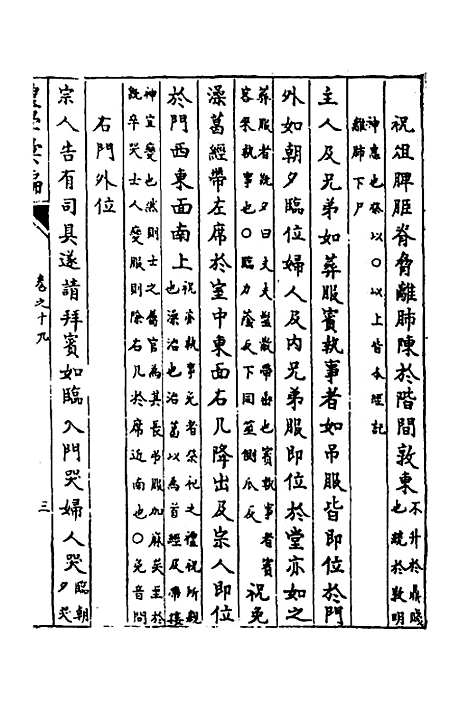 祝俎脾脰脊脅離肺陳於階間敦東
不升於鼎賤
也䟽於敦明
神惠也祭以○以上皆本經記
離肺下尸
主人及兄弟如葬服賓執事者如吊服皆即位於門
外如朝夕臨位婦人及内兄弟服即位於堂亦如之
葬服者既夕曰丈夫髽散帶垂也賓執事者賓
客來執事也○臨力蔭反下同髽側瓜反
祝免
澡葛絰帶布席於室中東面右几降出及宗人即位
於門西東面南上
祝亦執事免者祭祀之禮祝所親
也澡治也治葛以為首絰及帶接
神宜變也然則士之屬官為其長吊服加麻矣至於
既卒哭主人變服則除右几於席近南也○免音問
右門外位
宗人告有司具遂請拜賓如臨入門哭婦人哭
臨朝
夕哭
卷之十九
三